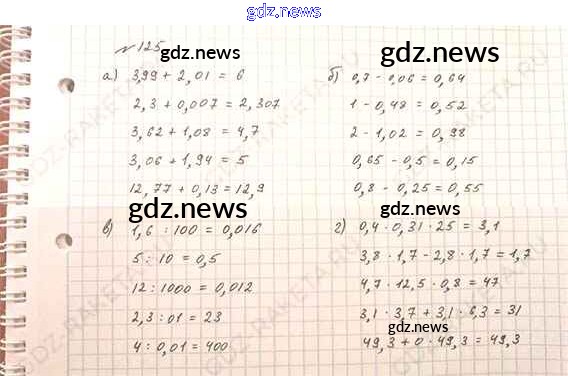 gdz.news
№ 125
gdz.news
gdz.news
а) 3,99 + 2,01 = 6
2,3 + 0,007 = 2,307
3,62 + 1,08 = 4,7
3,06 + 1,94 = 5
12,77 + 0,13 = 12,9
б) 0,7 - 0,06 = 0,64
1 - 0,48 = 0,52
2 - 1,02 = 0,98
0,65 - 0,5 = 0,15
0,8 - 0,25 = 0,55
gdz.news
gdz.news
в) 1,6 : 100 = 0,016
5 : 10 = 0,5
12 : 1000 = 0,012
2,3 : 01 = 23
4 : 0,01 = 400
г) 0,4 · 0,31 · 25 = 3,1
3,8 · 1,7 - 2,8 · 1,7 = 1,7
4,7 · 12,5 · 0,8 = 47
3,1 · 3,7 + 3,1 · 6,3 = 31
gdz.news
49,3 + 0 · 49,3 = 49,3
GDZ-RAKETA.RU